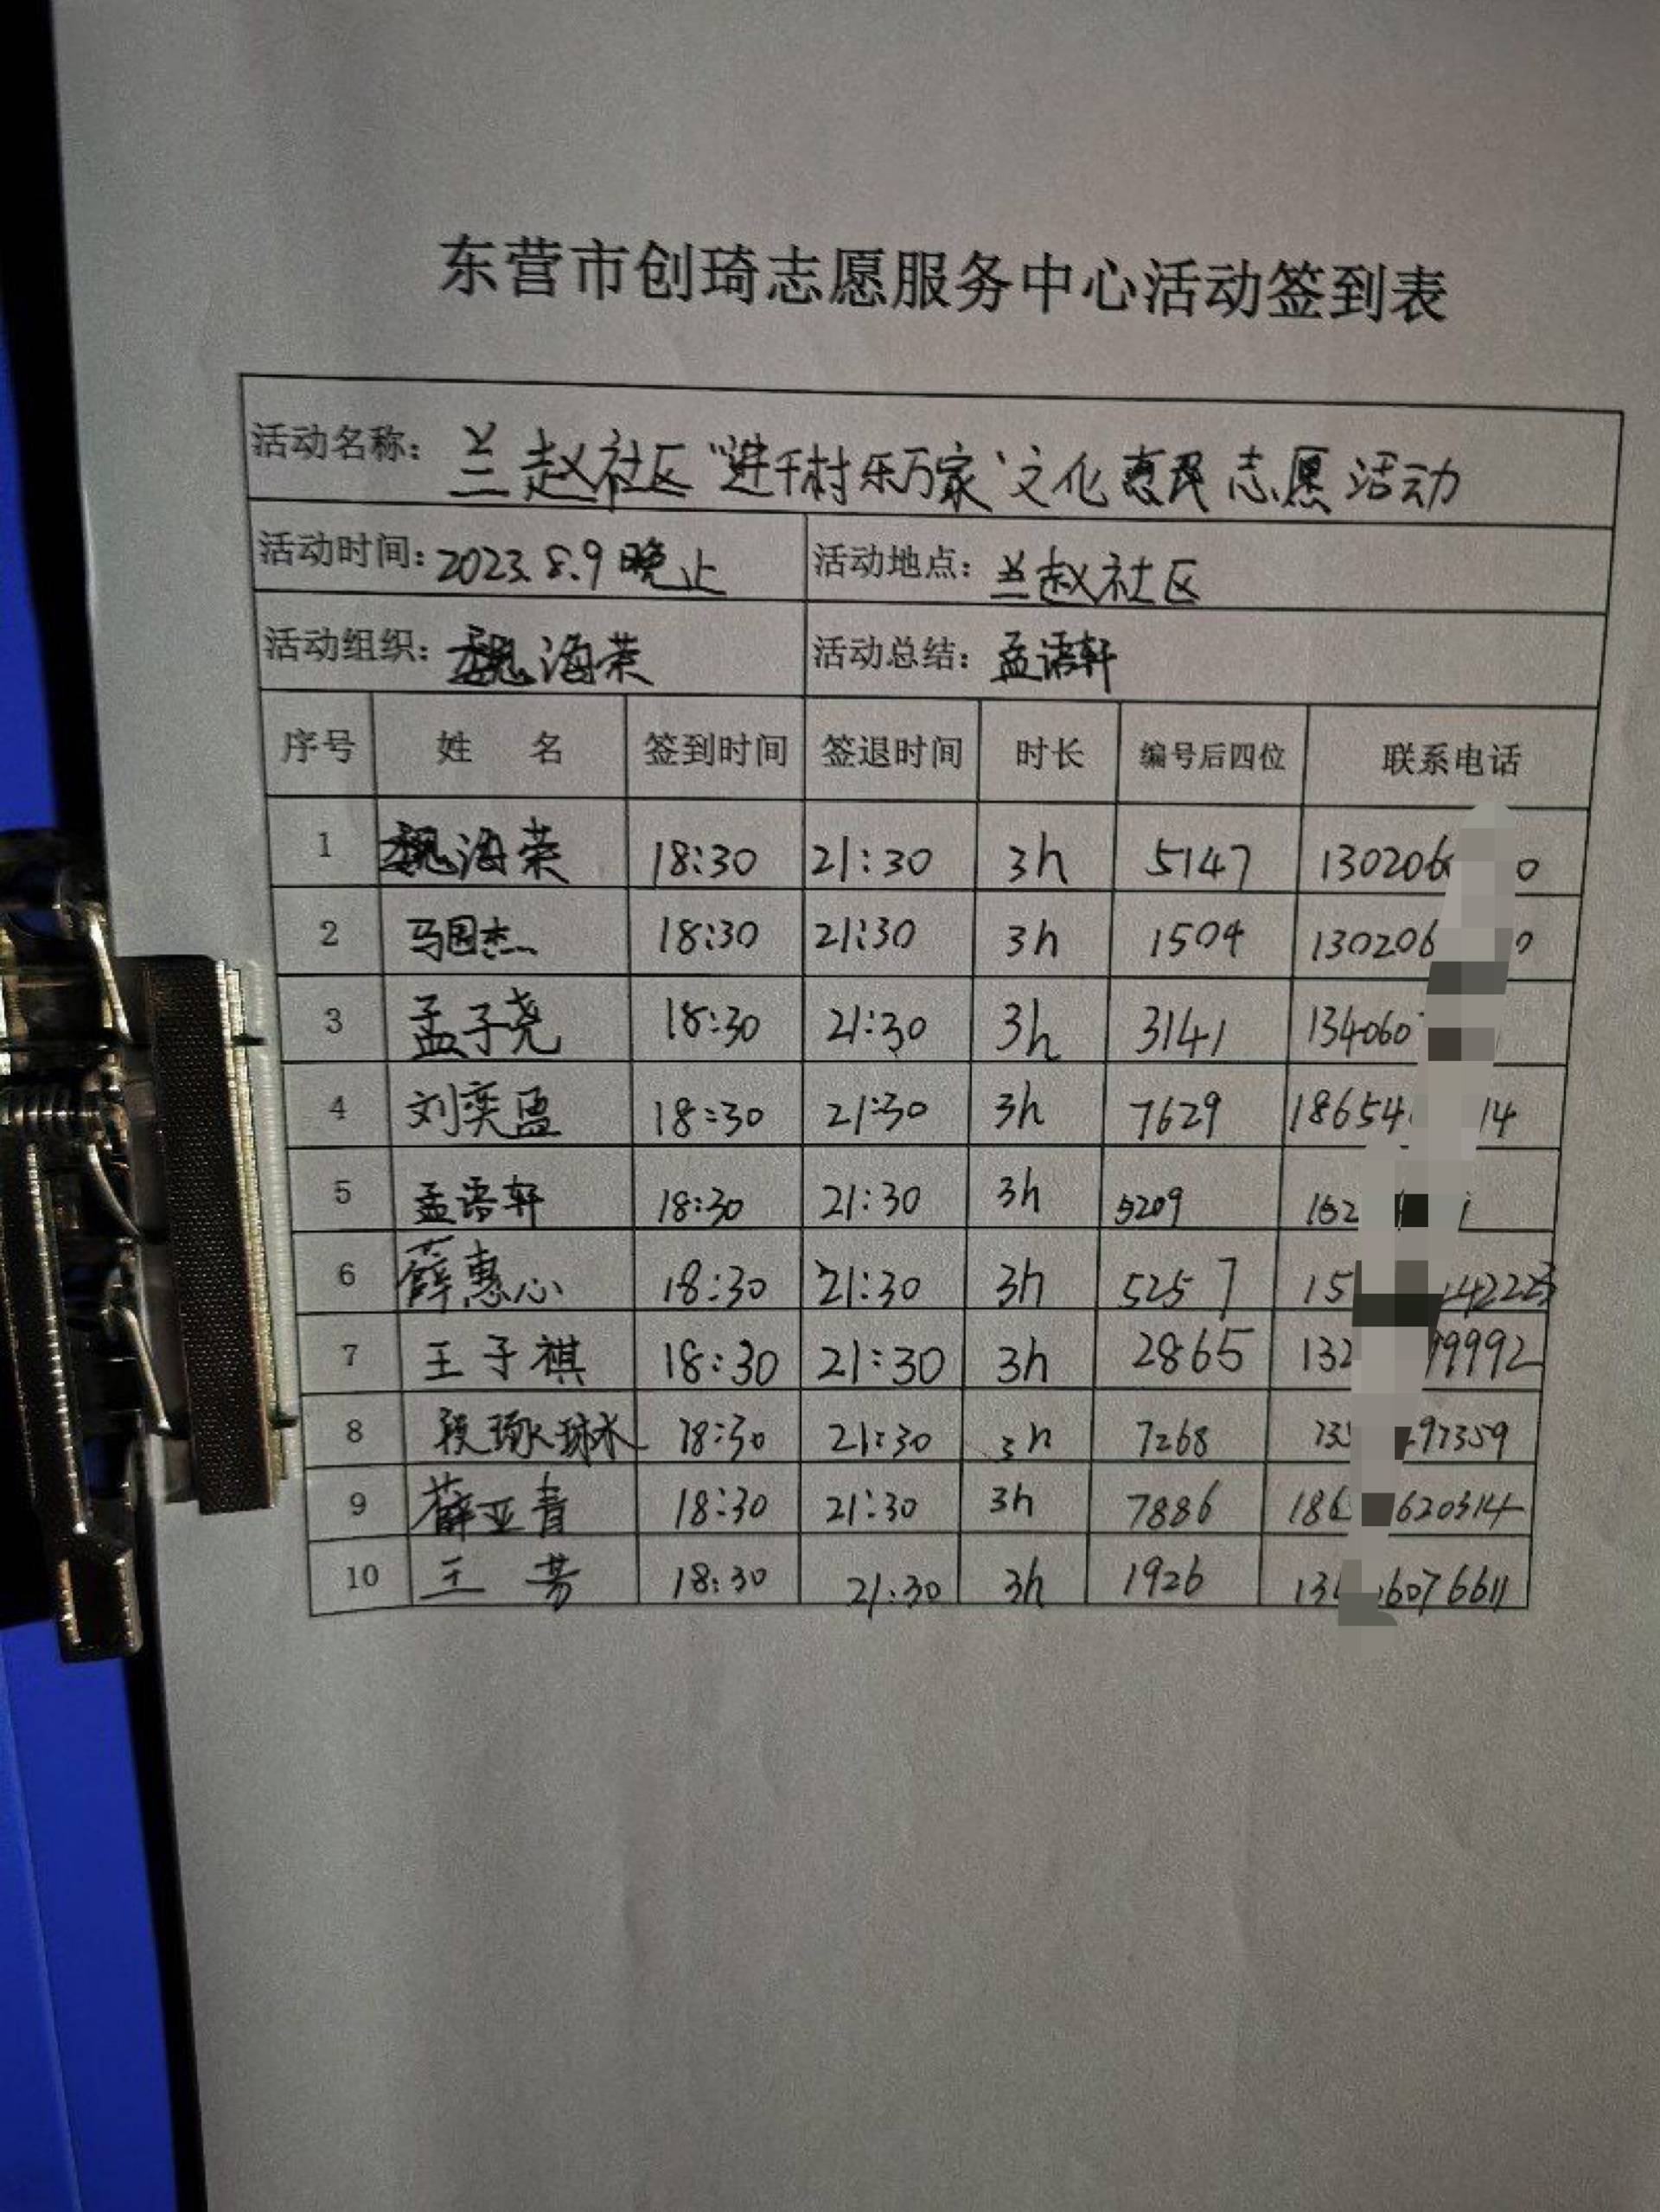 东营市创琦志愿服务中心活动签到表
活动名称: 兰赵社区"进千村乐万家"文化惠民志愿活动
活动时间: 2023.8.9 晚上 活动地点: 兰赵社区
活动组织: 魏海荣 活动总结: 孟语轩
序号 姓 名 签到时间 签退时间 时长 编号后四位 联系电话
1 魏海荣 18:30 21:30 3h 5147 130206 0
2 马国杰 18:30 21:30 3h 1504 130206 0
3 孟子尧 18:30 21:30 3h 3141 134060
4 刘奕盈 18:30 21:30 3h 7629 18654 14
5 孟语轩 18:30 21:30 3h 5209 152 1
6 薛惠心 18:30 21:30 3h 5257 15 42223
7 王子祺 18:30 21:30 3h 2865 132 99992
8 段琢琳 18:30 21:30 3h 7268 97359
9 薛亚青 18:30 21:30 3h 7886 186 620314
10 王 芳 18:30 21:30 3h 1926 13 6076611